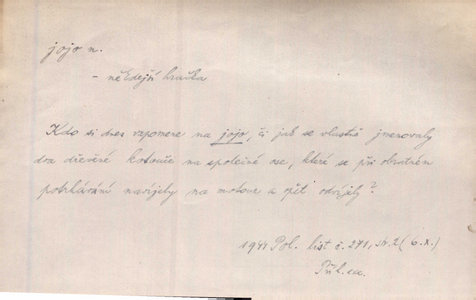 jojo n.
- někdejší hračka
Kdo si dnes vzpomene na jojo, či jak se vlastně jmenovaly
dva dřevěné kotouče na společné ose, které se při obratném
potrhávání navíjely na motouz a opět odvíjely?
1941 Pol. list č. 271, str. 2 (6. X.)